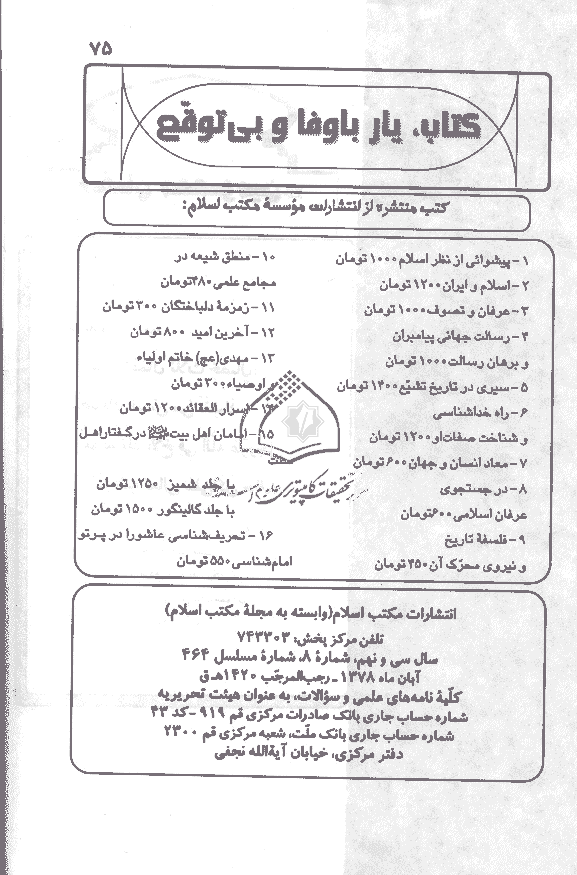 ۷۵
کتاب، یار باوفا و بی‌توقّع
کتب منتشره از انتشارات مؤسسهٔ مکتب اسلام:
۱- پیشوائی از نظر اسلام ۱۰۰۰ تومان
۲- اسلام و ایران ۱۲۰۰ تومان
۳- عرفان و تصوف ۱۰۰۰ تومان
۴- رسالت جهانی پیامبران
و برهان رسالت ۱۰۰۰ تومان
۵- سیری در تاریخ تشیّع ۱۴۰۰ تومان
۶- راه خداشناسی
و شناخت صفات او ۱۲۰۰ تومان
۷- معاد انسان و جهان ۶۰۰ تومان
۸- در جستجوی
عرفان اسلامی ۶۰۰ تومان
۹- فلسفهٔ تاریخ
و نیروی محرّک آن ۴۵۰ تومان
۱۰- منطق شیعه در
مجامع علمی ۴۸۰ تومان
۱۱- زمزمهٔ دلباختگان ۳۰۰ تومان
۱۲- آخرین امید ۸۰۰ تومان
۱۳- مهدی(عج) خاتم اولیاء
و اوصیاء ۳۰۰ تومان
۱۴- اسرار العقائد ۱۲۰۰ تومان
۱۵- امامان اهل بیت در گفتار اهل
با جلد شمیز ۱۲۵۰ تومان
با جلد گالینگور ۱۵۰۰ تومان
۱۶- تحریف‌شناسی عاشورا در پرتو
امام‌شناسی ۵۵۰ تومان
مرکز تحقیقات کامپیوتری علوم اسلامی
انتشارات مکتب اسلام(وابسته به مجلهٔ مکتب اسلام)
تلفن مرکز پخش: ۷۴۳۳۰۳
سال سی و نهم، شمارهٔ ۸، شمارهٔ مسلسل ۴۶۴
آبان ماه ۱۳۷۸ ـ رجب‌المرجّب ۱۴۲۰ هـ.ق
کلّیهٔ نامه‌های علمی و سؤالات، به عنوان هیئت تحریریه
شماره حساب جاری بانک صادرات مرکزی قم ۹۱۹ - کد ۴۳
شماره حساب جاری بانک ملّت، شعبه مرکزی قم ۲۳۰۰
دفتر مرکزی، خیابان آیةالله نجفی